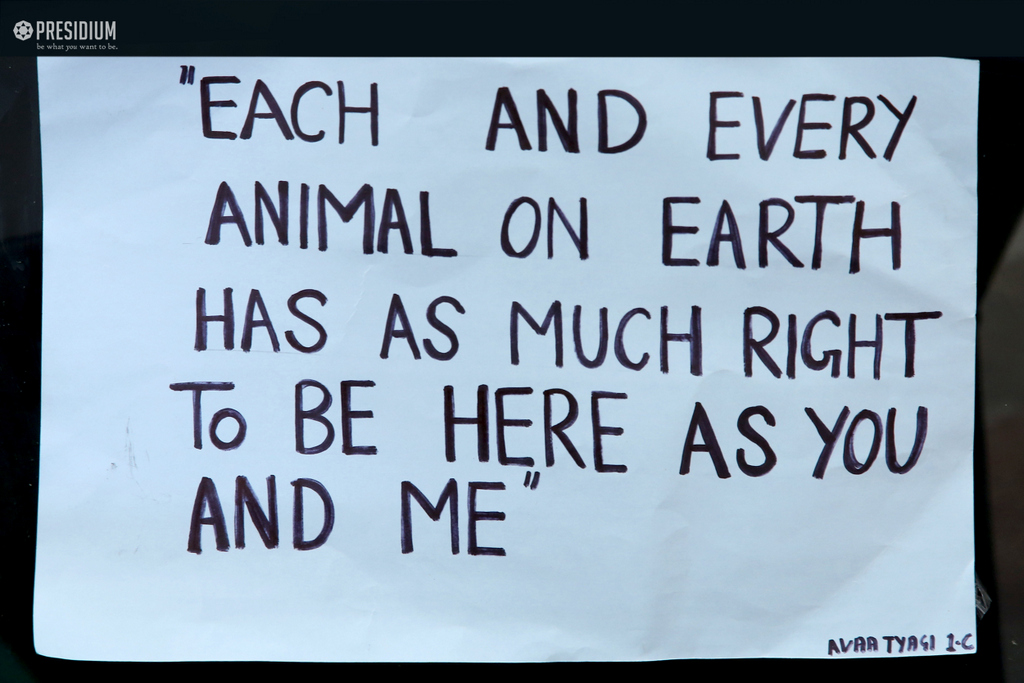 PRESIDIUM
be what you want to be.
"EACH AND EVERY
ANIMAL ON EARTH
HAS AS MUCH RIGHT
To BE HERE AS YOU
AND ME"
AVAA TYAGI 1-C